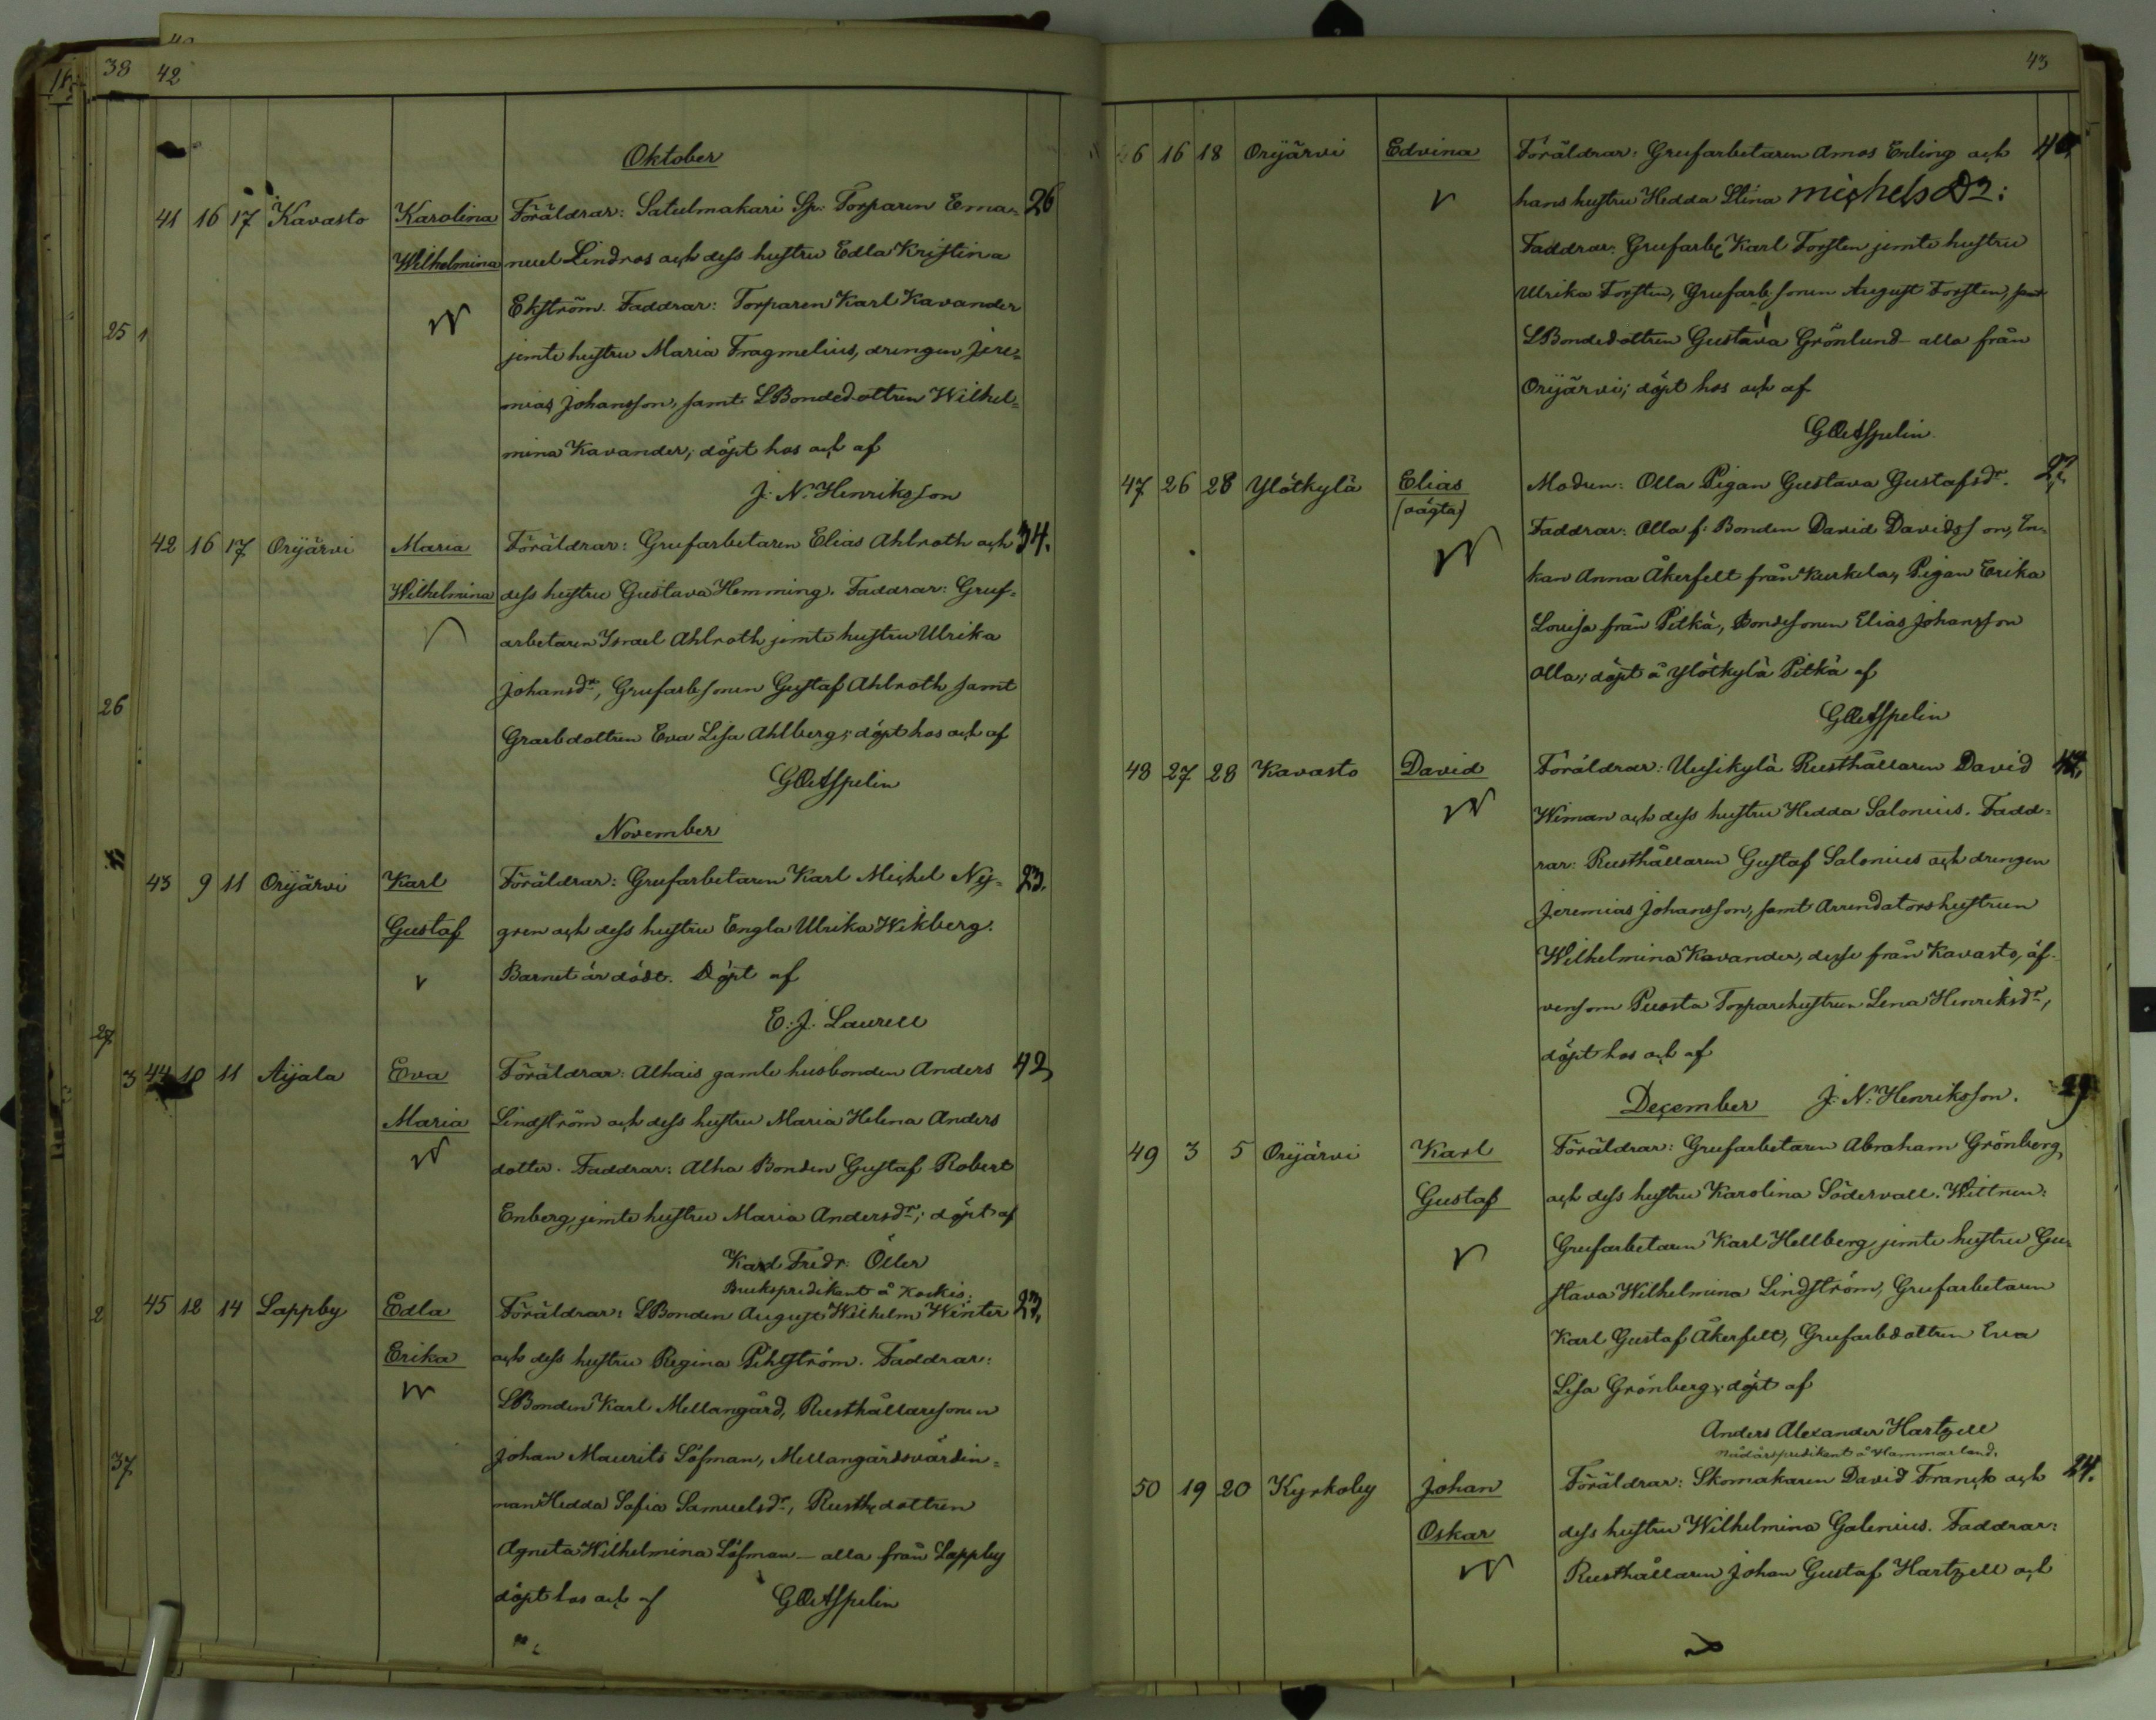 38 42
Oktober
41 16 17 Kavasto Karolina Föräldrar: Satulmakari Sp. Torparen Ema= 26
Wilhelmina nuel Lindros och dess hustru Edla Kristina
Ekström. Faddrar: Torparen Karl Kavander
25 1
jemte hustru Maria Fragmelius, drengen Jere=
mias Johansson, samt LBondedottren Wilhel=
mina Kavander; döpt hos och af
J. N. Henriksson
42 16 17 Orijärvi Maria Föräldrar: Grufarbetaren Elias Ahlroth och 34.
Wilhelmina dess hustru Gustava Hemming. Faddrar: Gruf=
arbetaren Israel Ahlroth jemte hustru Ulrika
Johansdr, Grufarbsonen Gustaf Ahlroth samt
26
Grarbdottren Eva Lisa Ahlberg; döpt hos och af
November
43 9 11 Orijärvi Karl Föräldrar: Grufarbetaren Karl Michel Ny= 23.
Gustaf gren och dess hustru Engla Ulrika Wikberg.
Barnet är dödt. Döpt af
E. J. Laurell
27
3 44 10 11 Aijala Eva Föräldrar: Alhais gamle husbonden Anders 42
Maria Lindström och dess hustru Maria Helena Anders
dotter. Faddrar: Alha Bonden Gustaf Robert
Enberg jemte hustru Maria Andersdr; döpt af
Karl Fredr. Öller
Brukspredikant å Koskis:
2 45 12 14 Lappby Edla Föräldrar: LBonden August Wilhelm Winter 23.
Erika och dess hustru Regina Pihlström. Faddrar:
LBonden Karl Mellangård, Rusthållaresonen
Johan Maurits Löfman, Mellangårdsvärdin=
37
nan Hedda Sofia Samuelsdr, Rusthdottren
Agneta Wilhelmina Löfman – alla från Lappby
döpt hos och af
43
46 16 18 Orijärvi Edvina Föräldrar: Grufarbetaren Amos Enling och 40
hans hustru Hedda Stina Michelsdr:
Faddrar: Grufarb Karl Forsten jemte hustru
Ulrika Forsten, Grufarbsonen August Forsten, samt
LBondedottren Gustava Grönlund – alla från
Orijärvi; döpt hos och af
47 26 28 Ylötkylä Elias Modren: Olla Pigan Gustava Gustafsdr.
(oägta)
Faddrar: Olla f. Bonden David Davidsson, En=
kan Anna Åkerfelt från Kurkela, Pigan Erika
Lovisa från Pitkä, Bondesonen Elias Johansson
Olla; döpt å Ylötkylä Pitkä af
48 27 28 Kavasto David Föräldrar: Uusikylä Rusthållaren David
Wiman och dess hustru Hedda Salonius. Fadd=
rar: Rusthållaren Gustaf Salonius och drengen
Jeremias Johansson, samt Arrendatorshustrun
Wilhelmina Kavander, desse från Kavasto, äf-
vensom Puosta Torparehustrun Lena Henriksdr,
döpt hos och af
December J. N. Henriksson.
49 3 5 Orijärvi Karl Föräldrar: Grufarbetaren Abraham Grönberg
Gustaf och dess hustru Karolina Södervall. Wittnen:
Grufarbetaren Karl Hellberg jemte hustru Gu=
stava Wilhelmina Lindström, Grufarbetaren
Karl Gustaf Åkerfelt, Grufarbdottren Eva
Lisa Grönberg; döpt af
Anders Alexander Hartzell
Nådårspredikant å Hammarland.
50 19 20 Kyrkoby Johan Föräldrar: Skomakaren David Franck och 24.
Oskar dess hustru Wilhelmina Galenius. Faddrar:
Rusthållaren Johan Gustaf Hartzell och